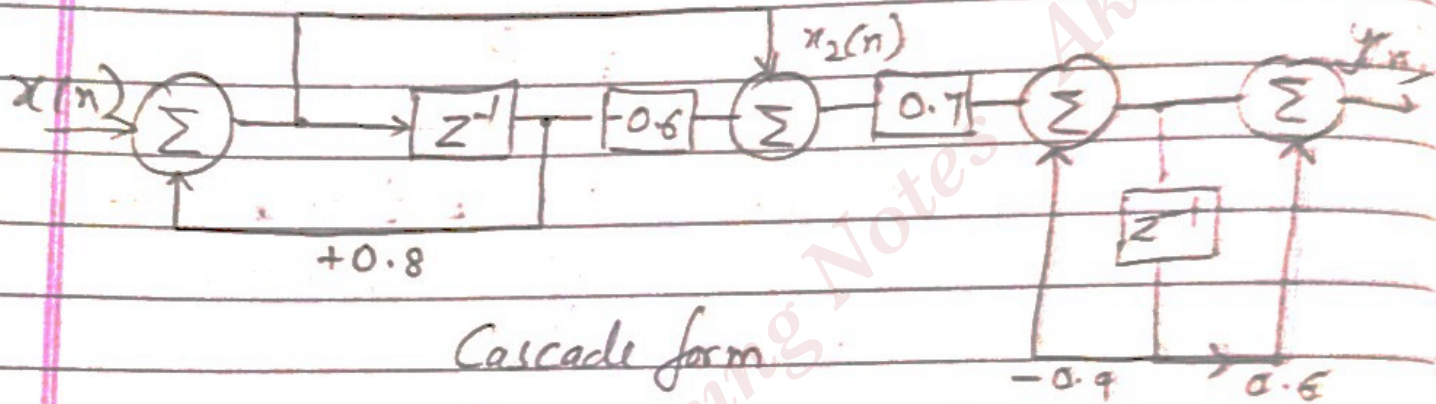 x(n) Σ z⁻¹ -0.6 Σ x₂(n) 0.7 Σ Σ
z⁻¹
+0.8
Cascade form
-0.9 0.6
Notes